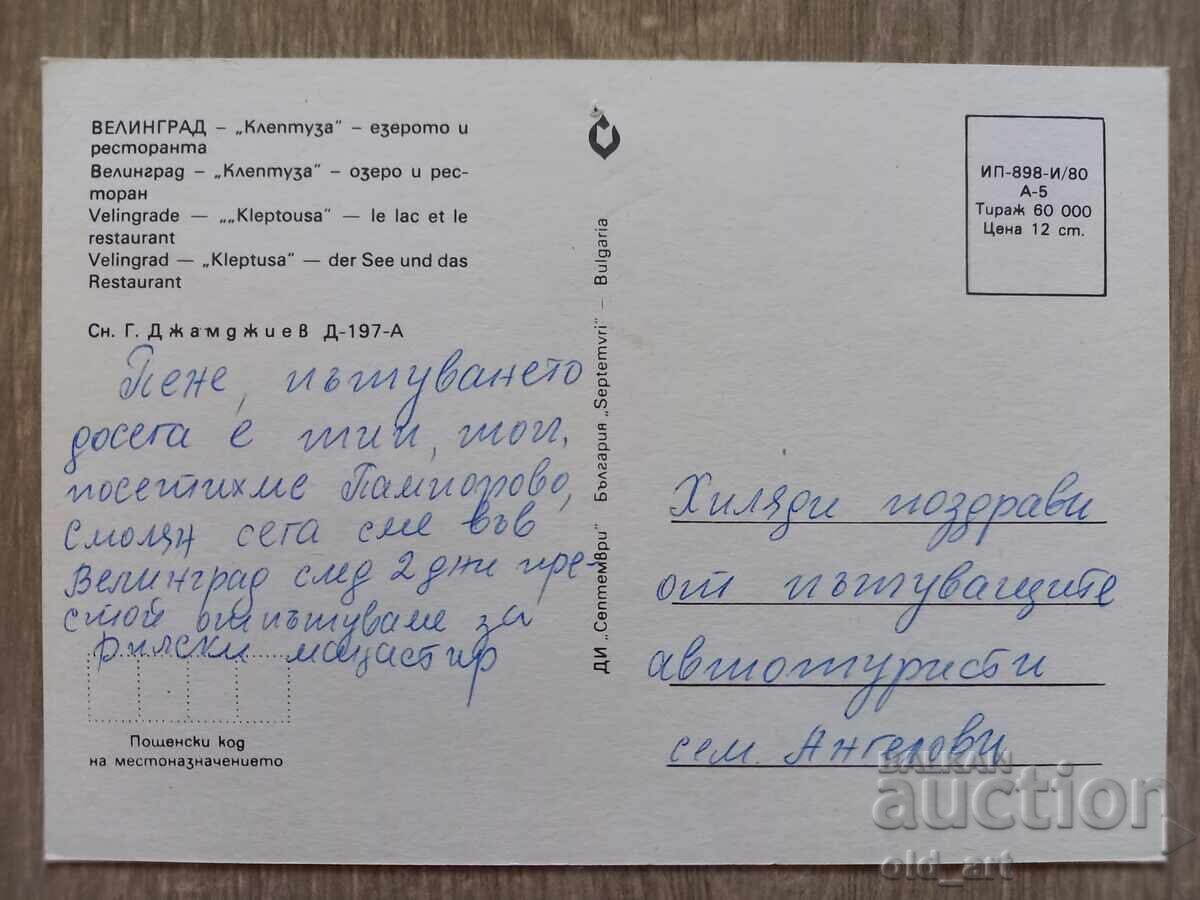 ВЕЛИНГРАД – „Клептуза" – езерото и
ресторанта
Велинград – „Клептуза" – озеро и рес-
торан
Velingrade — „„Kleptousa" — le lac et le
restaurant
Velingrad — „Kleptusa" — der See und das
Restaurant
Сн. Г. Джамджиев Д-197-А
Пене, пътуването
досега е тип, топ,
посетихме Пампорово,
Смолян сега сме във
Велинград след 2 дни пре-
стой отпътуваме за
Рилски манастир
Пощенски код
на местоназначението
ДИ „Септември" България „Septemvri" – Bulgaria
ИП-898-И/80
А-5
Тираж 60 000
Цена 12 ст.
Хиляди поздрави
от пътуващите
автотуристи
сем. Ангелови
BALKAN
auction
old_art